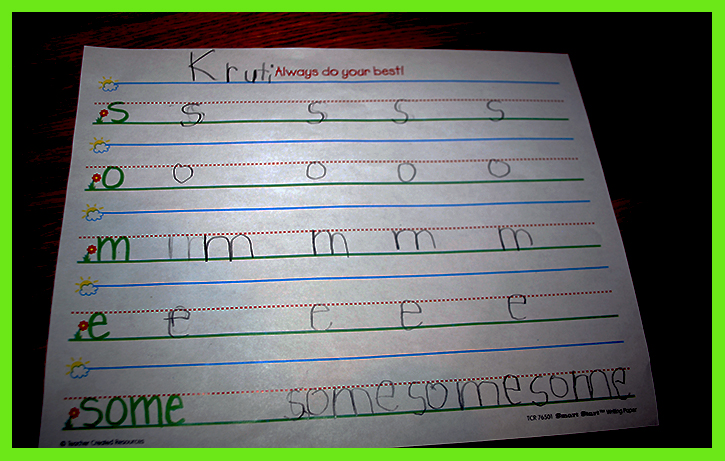 Kruti Always do your best!
s s s s s
o o o o o
m m m m m
e e e e e
some some some some
TCR 76501 Smart Start™ Writing Paper
© Teacher Created Resources